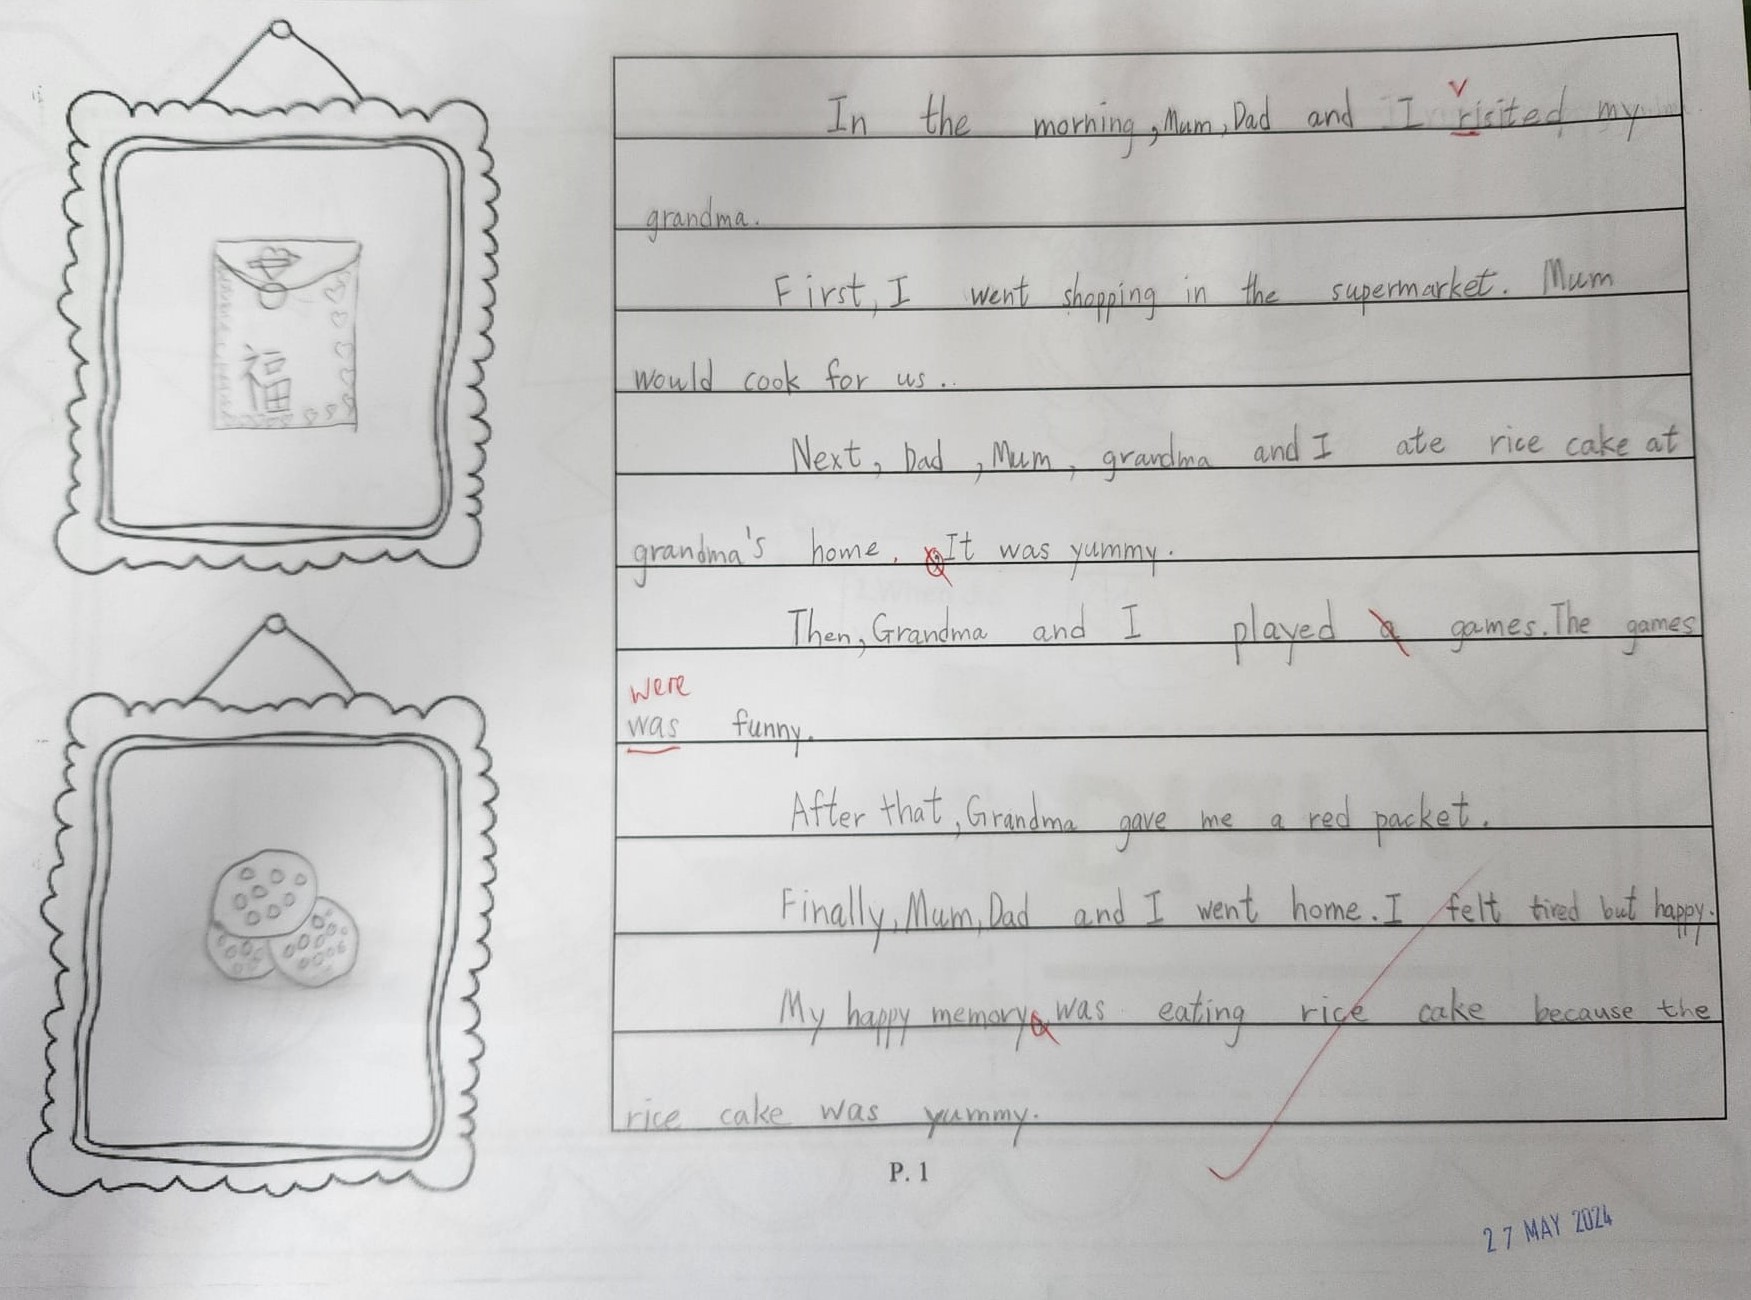 福
v
In the morning, Mum, Dad and I risited my
grandma.
First, I went shopping in the supermarket. Mum
would cook for us..
Next, Dad, Mum, grandma and I ate rice cake at
grandma's home. It was yummy.
Then, Grandma and I played a games. The games
were
was funny.
After that, Grandma gave me a red packet.
Finally, Mum, Dad and I went home. I felt tired but happy.
My happy memory was eating rice cake because the
rice cake was yummy.
P. 1
27 MAY 2024